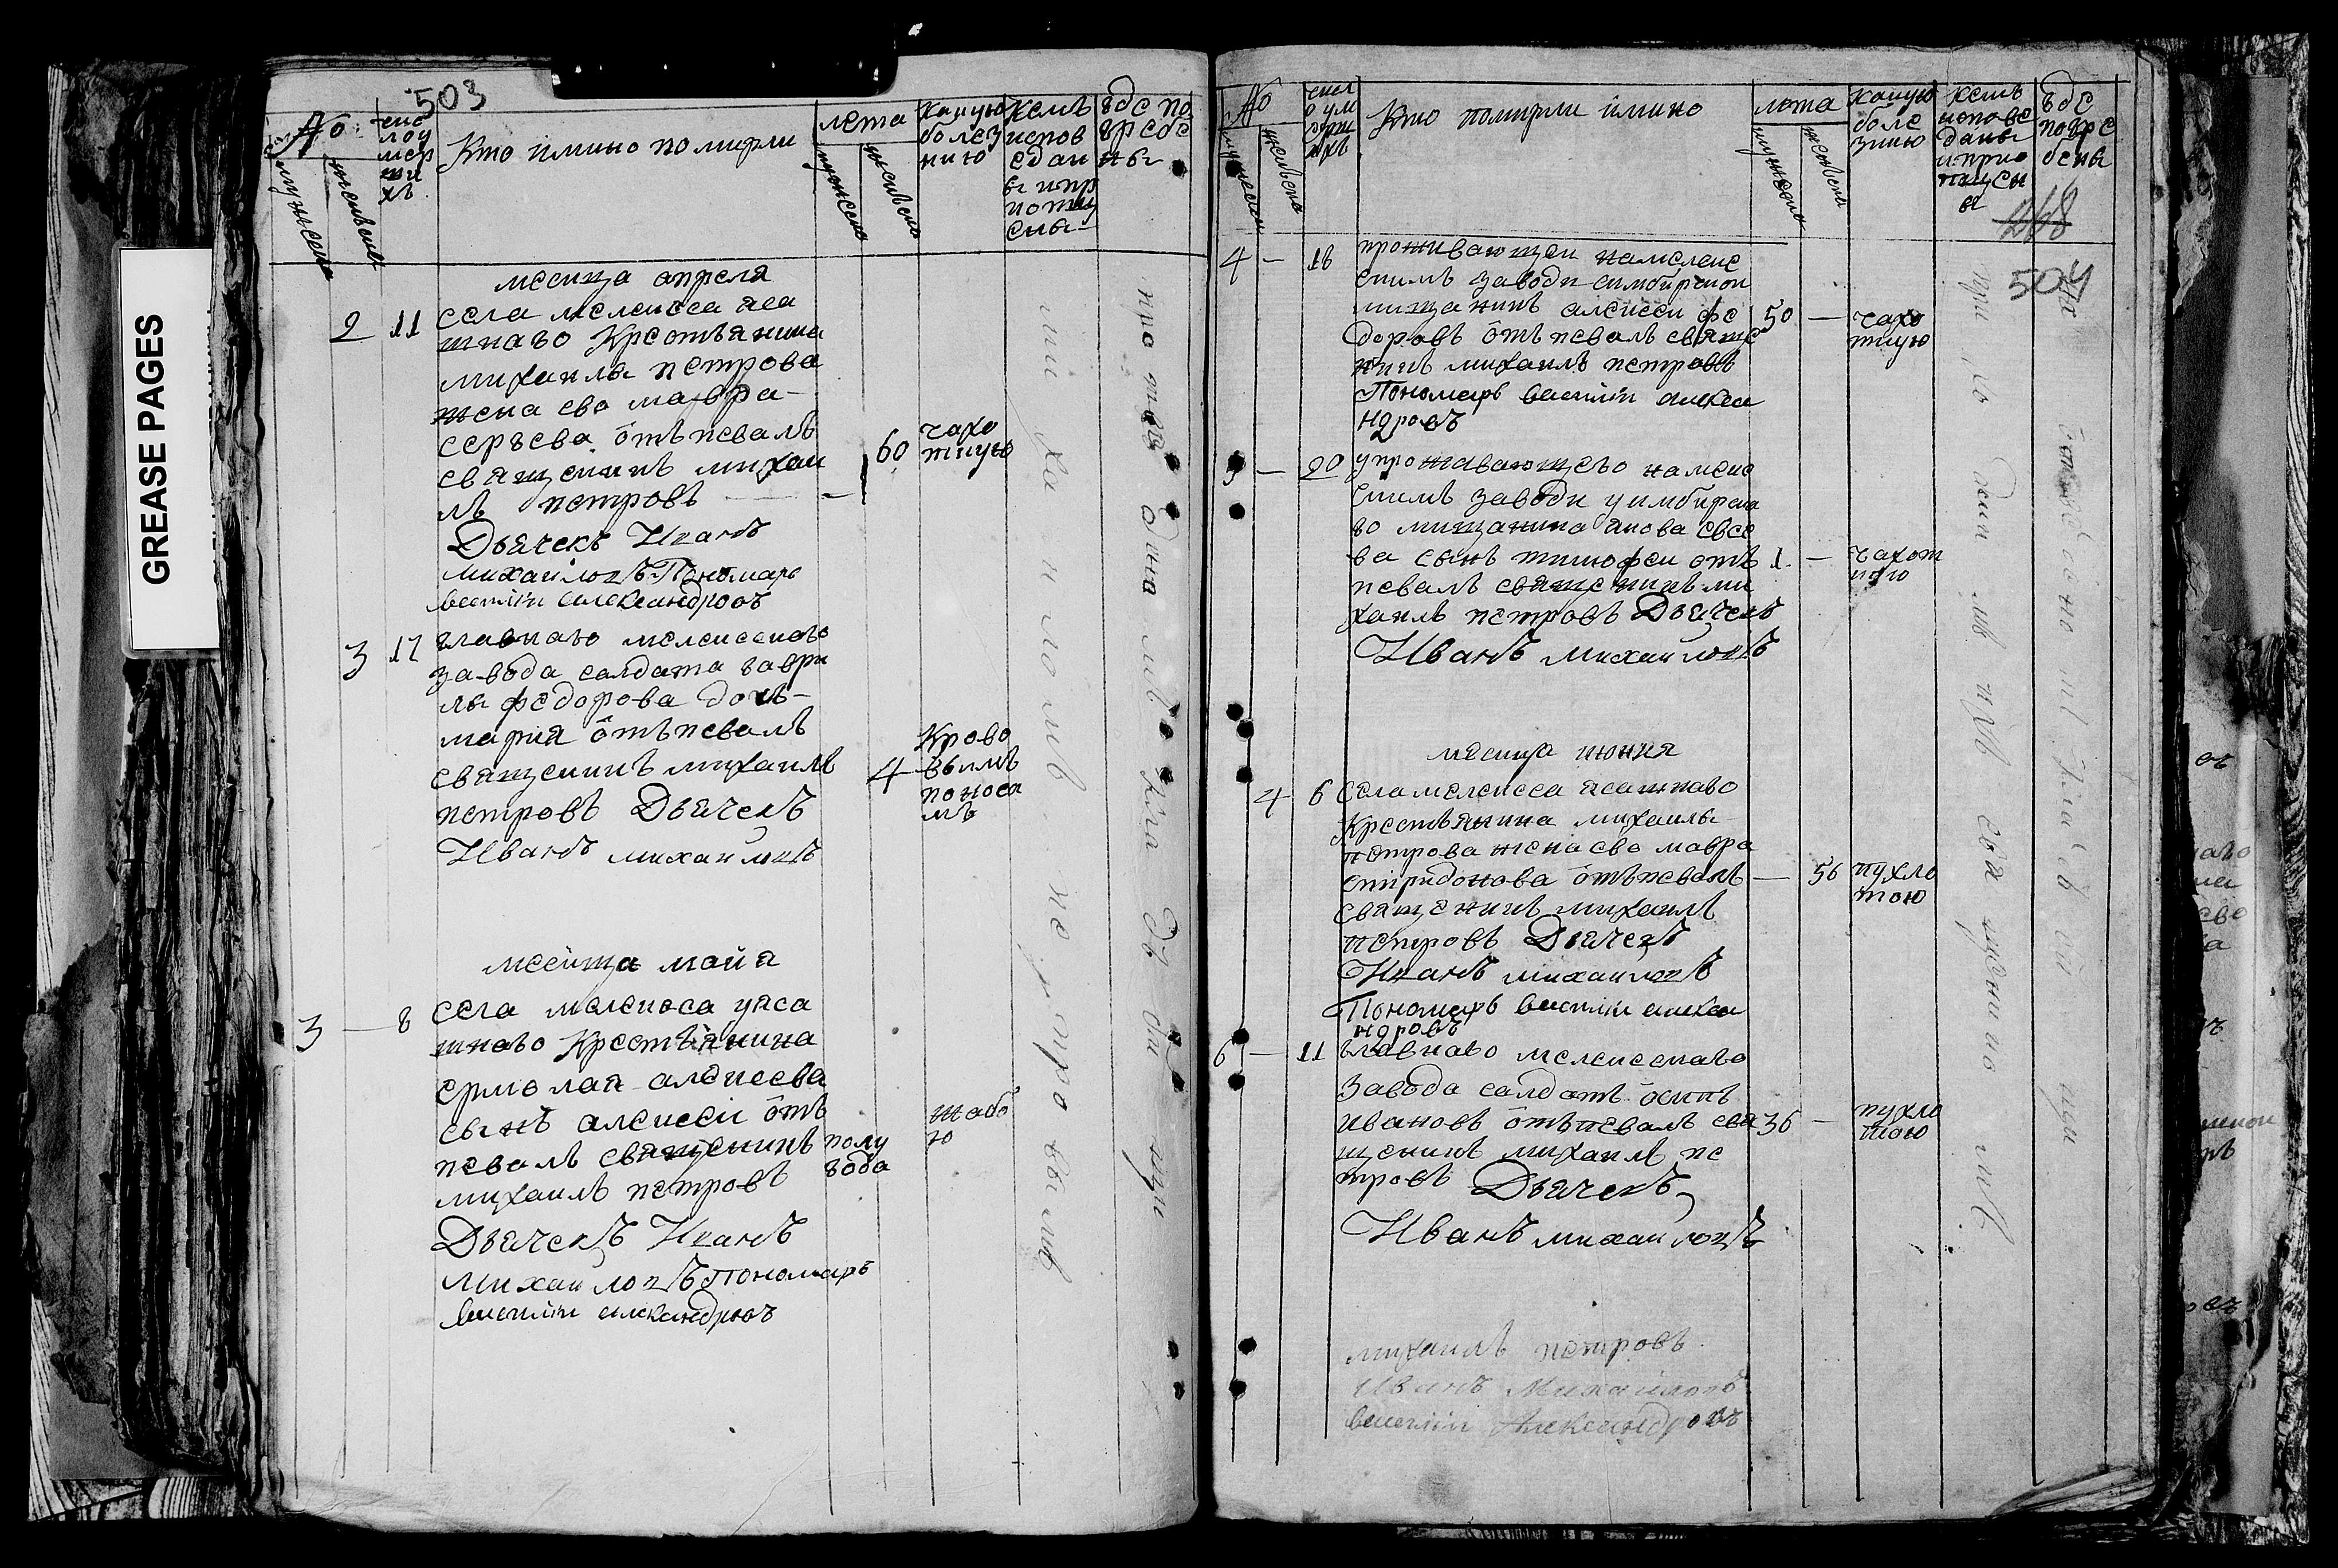 GREASE PAGES
503
№
мужеска
женска
число умерших
Кто имяно померли
лета
мужеска
женска
какую
болез
нию
кемъ
испов
едан
ы и пр
ичащ
ены
где по
гребе
ны
месяца апреля
2 11 села мелекеса яса
шнаво Крестьянина
михаилы петрова
жена ево мавра
сергѣева отъпевалъ
священикъ михаи
лъ петровъ
60
чахо
тную
Дьячекъ Иванъ
михаиловъ Пономарь
василiи александровъ
3 17 главнаво мелекескаво
завода салдата гаври
лы федорова дочь
мария отъпевалъ
священикъ михаилъ
петровъ Дьячекъ
Иванъ михаиловъ
4
Крово
вымъ
поноса
мъ
месяца майя
3 — 8 села мелекеса уяса
шнаво Крестьянина
ермолая алексеева
сынъ алексеи отъ
певалъ священикъ
михаилъ петровъ
полу
года
жабо
ю
Дьячекъ Иванъ
михаиловъ Пономарь
василiи александровъ
№
мужеска
женска
Кто померли имяно
лета
мужеска
женска
какую
боле
знию
кемъ
испове
даны
и прио
пщены
где
погре
бены
248
504
4 — 16 проживающеи намелеке
скимъ заводи симбирскои
мищанинъ алексеи фе
доровъ отъпевалъ свяще
никъ михаилъ петровъ
Пономарь василiи алекса
ндровъ
50 —
чахо
тную
5 — 20 упроживающево намеле
скимъ заводи усимбирска
во мищанина якова евсе
ва сынъ тимофеи отъ
певалъ священикъ ми
хаилъ петровъ Дьячекъ
Иванъ михаиловъ
1 —
чахот
ною
месяца июния
4 6 села мелекеса ясашнаво
Крестьянина михаилы
петрова жена ево мавра
спиридонова отъпевалъ
священикъ михаилъ
петровъ Дьячекъ
Иванъ михаиловъ
Пономарь василiи алекса
ндровъ
— 56
пухло
тою
6 — 11 главнаво мелекескаво
завода салдатъ осипъ
ивановъ отъпевалъ свя
щеникъ михаилъ пе
тровъ Дьячекъ
Иванъ михаиловъ
36 —
пухло
тою
михаилъ петровъ
Иванъ Михаиловъ
василiи Александровъ